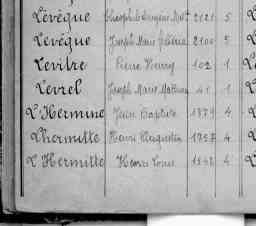 Lévêque Joseph Eugène 2121 5 L
Lévêque Joseph Marie 2100 5
Levitre Pierre Henry 102 1
Levrel Joseph Marie Mathurin 41 1 L
L'Hermine Jean Baptiste 1379 4 L
Lhermitte Henri Augustin 1757 4
L'Hermitte Henri Louis 1542 4 L